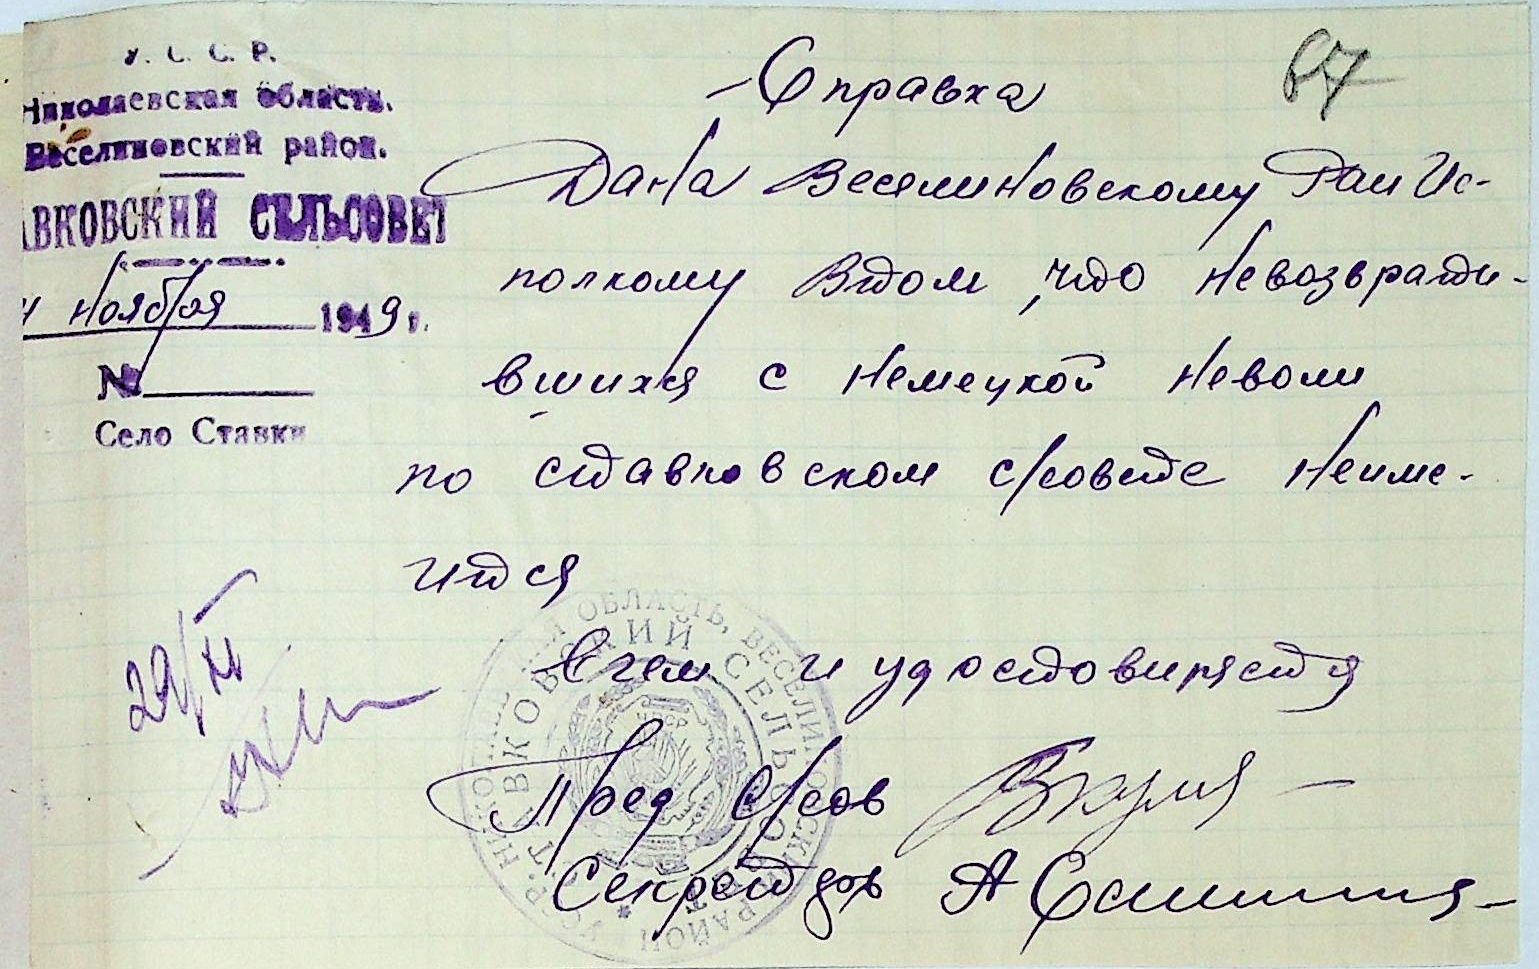 У. С. С. Р.
Николаевская область.
Веселиновский район.
АВКОВСКИЙ СЕЛЬСОВЕТ
ноября 1949 г.
№
Село Ставки
67
Справка
Дана Веселиновскому Рай Ис-
полкому втом, что невозврати-
вшихся с немецкой неволи
по ставковском с/совете неиме-
ится
В чем и удостовиряется
Пред с/сов
Секретарь А
29/XI
УССР. НИКОЛАЕВСКАЯ ОБЛАСТЬ, ВЕСЕЛИНОВСКИЙ РАЙОН
СТАВКОВСКИЙ СЕЛЬСОВЕТ
УССР